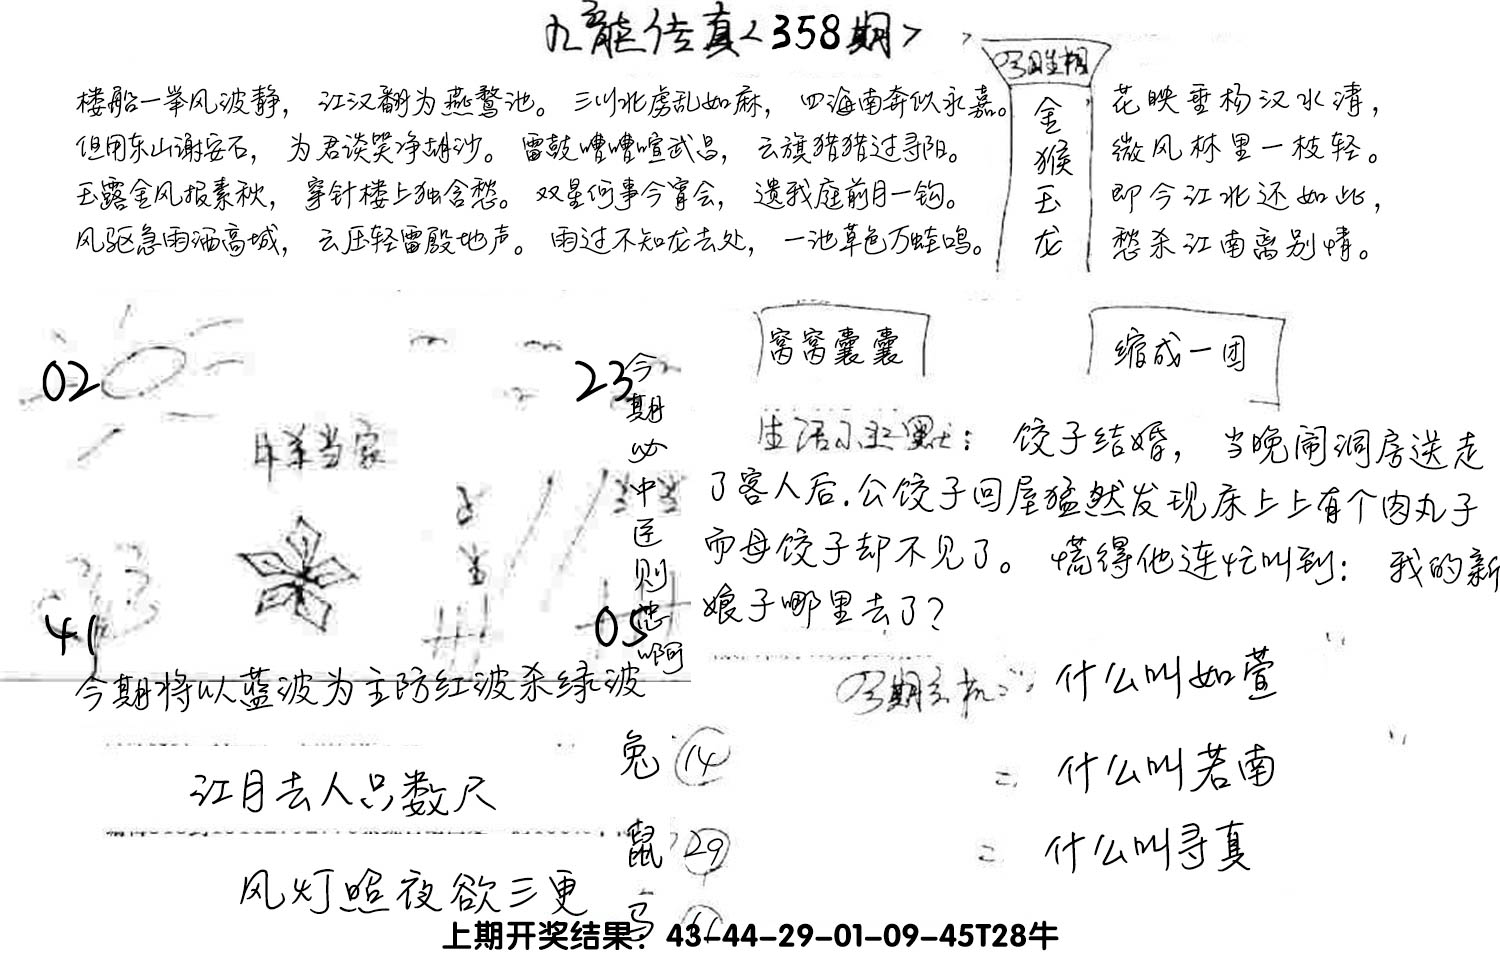 九龍传真<358期>
今期生相
金猴玉龙
楼船一举风波静，江汉翻为燕鹜池。三川北虏乱如麻，四海南奔似永嘉。
但用东山谢安石，为君谈笑净胡沙。雷鼓嘈嘈喧武昌，云旗猎猎过寻阳。
玉露金风报素秋，穿针楼上独含愁。双星何事今宵会，遗我庭前月一钩。
风驱急雨洒高城，云压轻雷殷地声。雨过不知龙去处，一池草色万蛙鸣。
花映垂杨汉水清，
微风林里一枝轻。
即今江北还如此，
愁杀江南离别情。
02
23
41
05
今期必中否则悲啊
今期将以蓝波为主防红波杀绿波
窝窝囊囊
缩成一团
生活小幽默：饺子结婚，当晚闹洞房送走
了客人后.公饺子回屋猛然发现床上上有个肉丸子
而母饺子却不见了。慌得他连忙叫到：我的新
娘子哪里去了？
今期玄机：什么叫如萱
=什么叫若南
=什么叫寻真
江月去人只数尺
风灯照夜欲三更
兔 14
鼠 29
马
上期开奖结果：43-44-29-01-09-45T28牛